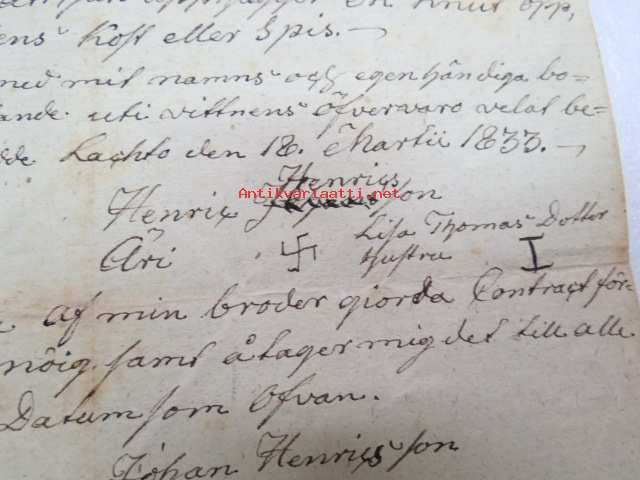 en Knut opp,
ens Kost eller Spis. —
med mit namns och egenhändiga bo=
ande uti vittnens öfvervaro velat be=
dde Lachto den 18. Martii 1833. —
Henrics
Antikvariaatti.net
Henric son
Äri 卐 Lisa Thomas Dotter
hustru I
Af min broder giorda Contract för=
nöig samt åtager mig det till alle
Datum som ofvan.
Johan Henrics son